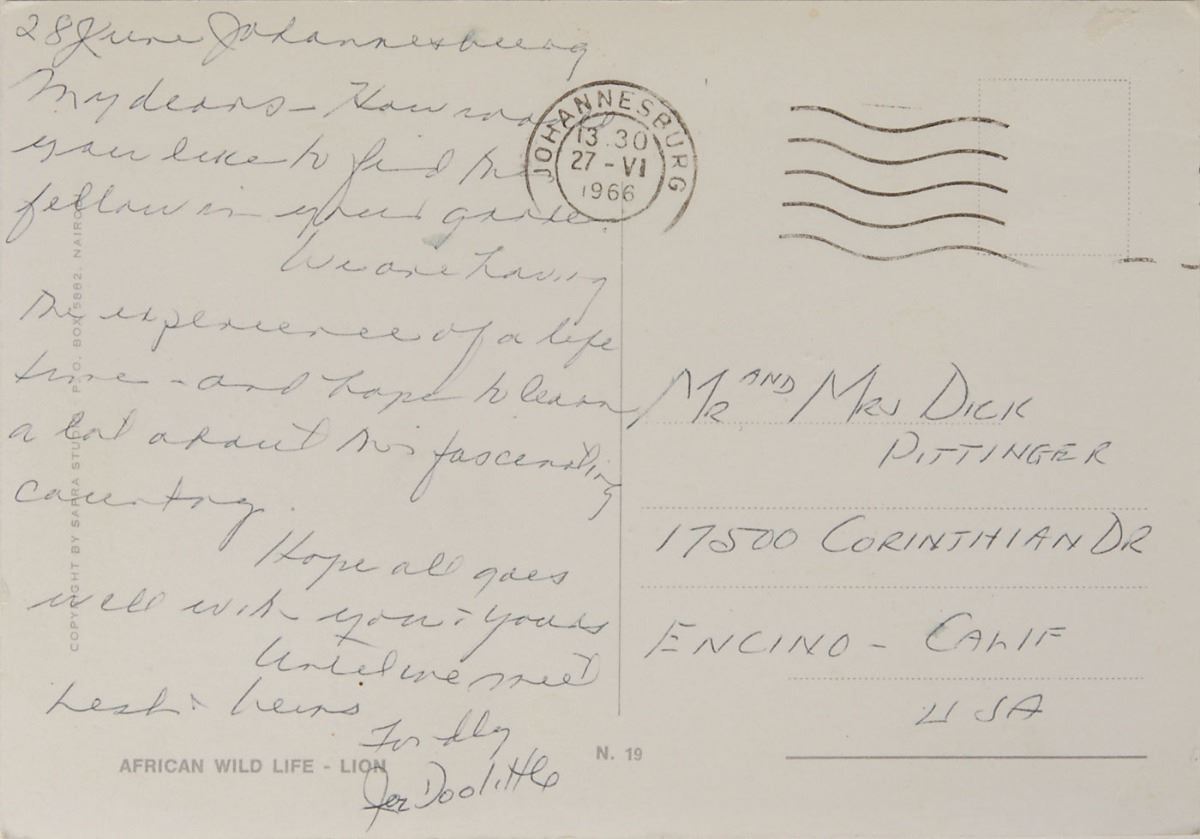 28 June Johannesburg
My dears - How would
you like to find this
fellow in your garden.
We are having
the experience of a life
time - and hope to learn
a lot about this fascinating
country.
Hope all goes
well with you & yours
Until we meet
best &
Fondly
Doolittle
COPYRIGHT BY SAPRA STUDIO P. O. BOX 5882, NAIROBI
AFRICAN WILD LIFE - LION
N. 19
JOHANNESBURG
13.30
27-VI
1966
MR AND MRS DICK
PITTINGER
17500 CORINTHIAN DR
ENCINO - CALIF
USA